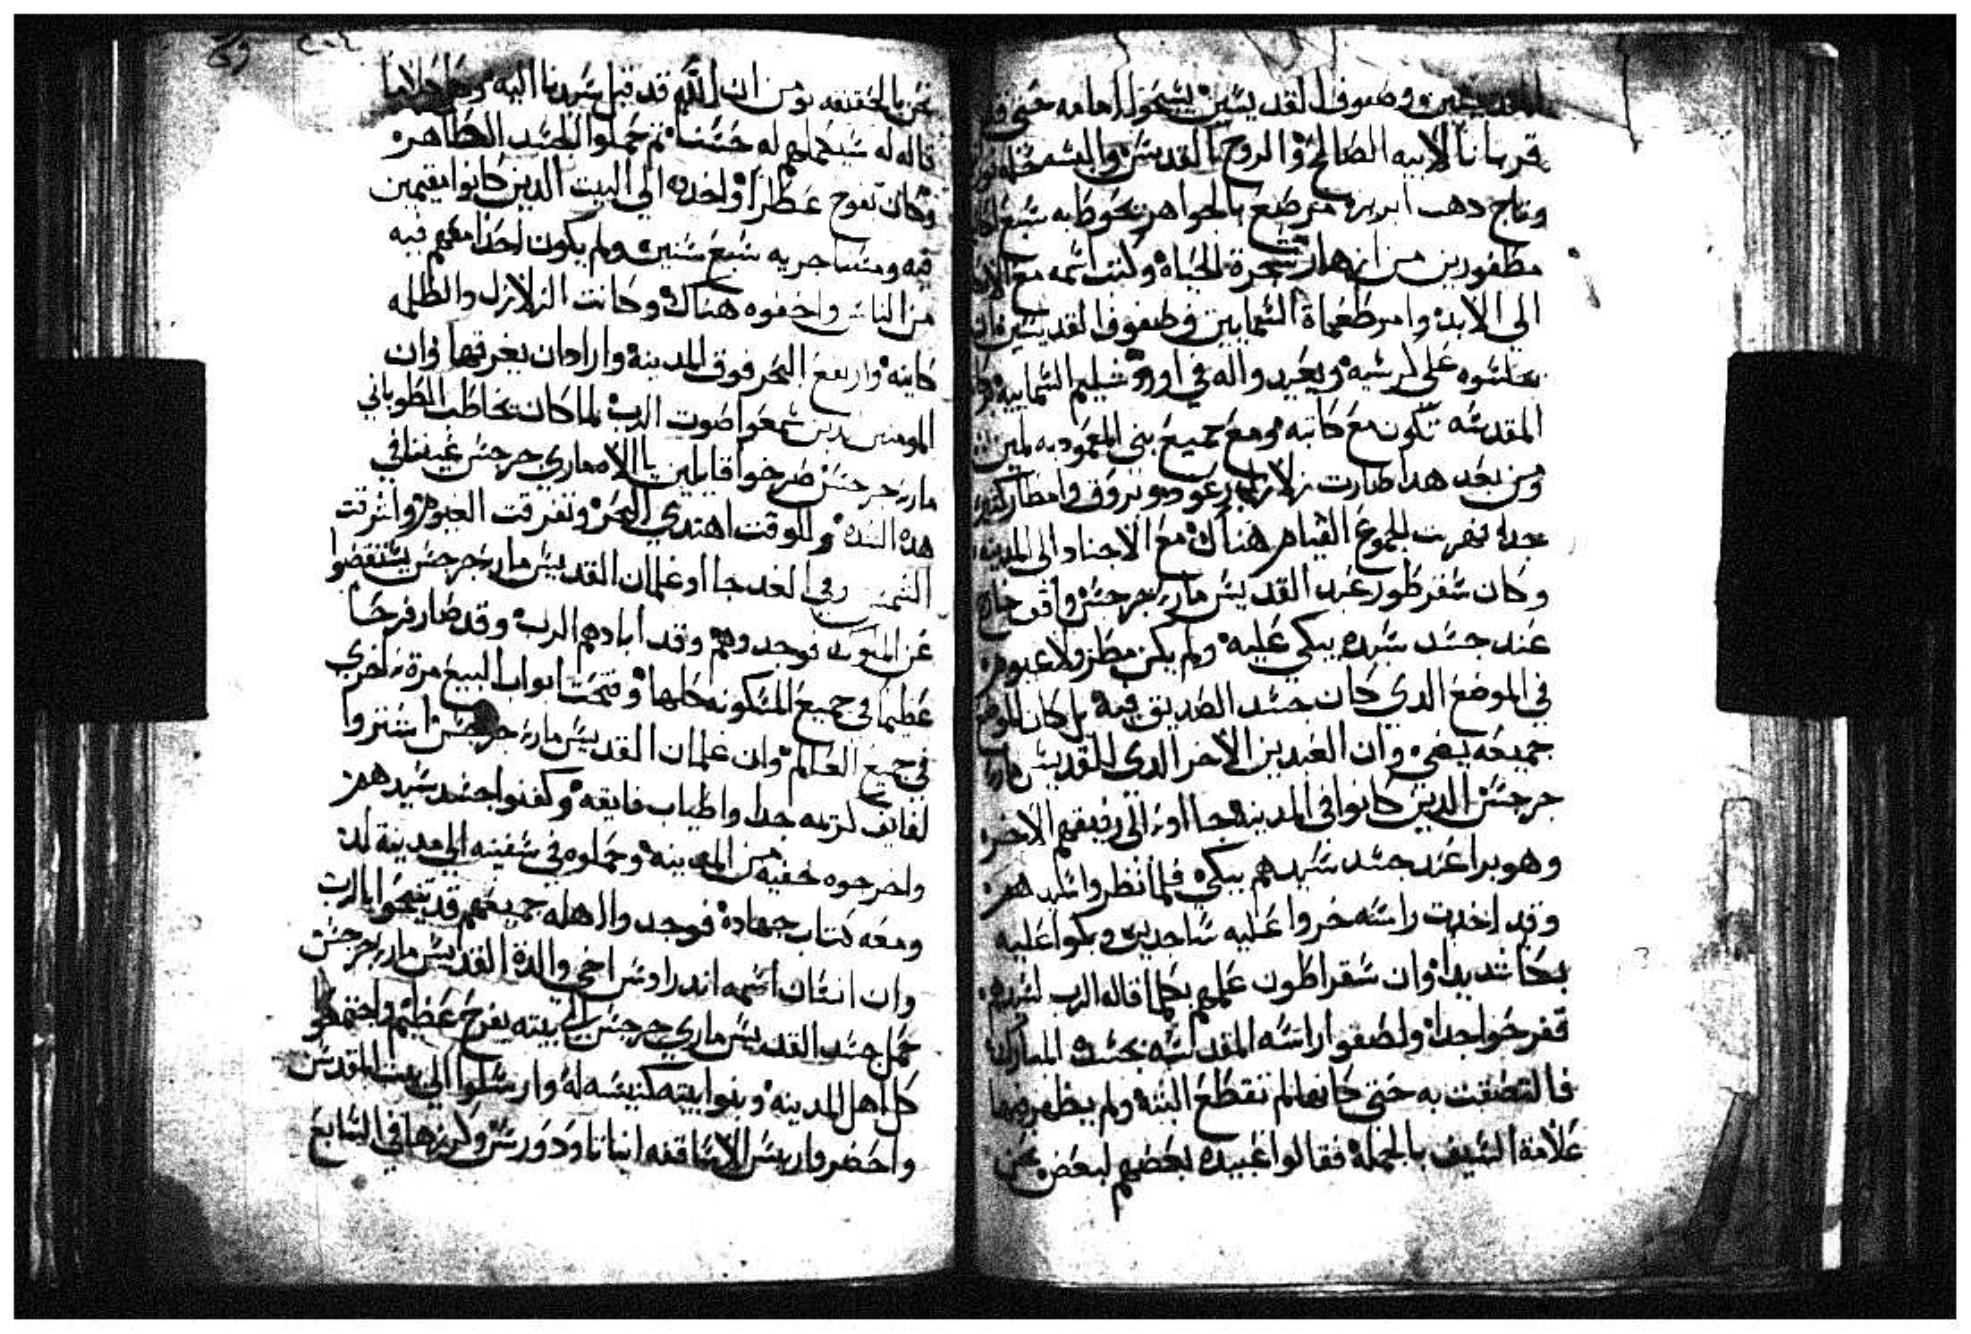 القديسين وصفوف القديسين يسبحوا امامه حتى
قربانا لابيه الصالح والروح القدس والبسه حله نور
وتاج دهب ابريز مرصع بالجواهر تحوط به سبع
مظفورين من ازهار شجرة الحياه وكتب اسمه مع
الى الابد وامر طغماة السمايين وصفوف القديسين ان
يجلسوه على كرسيه ويعيدوا له في اورشليم السماييه
المقدسه تكون مع كاتبه ومع جميع بني المعموديه امين
ومن بعد هدا صارت زلازل ورعود وبروق وامطار كتيره
جدا فهربت الجموع القيام هناك مع الاجناد الى المدينه
وكان سقرطور عبد القديس ماري جرجس واقف
عند جسد سيده يبكي عليه ولم يكن مطر ولا
في الموضع الدي كان جسد الصديق فيه بل كان الموضع
جميعه يضي وان العبدين الاخر الدي للقديس ماري
جرجس الدين كانوا في المدينه جااو الى رفيقهم الاخر
وهو يرا عند جسد سيدهم يبكي فلما نظروا سيدهم
وقد اخدت راسه خروا عليه ساجدين وبكوا عليه
بكا شديدا وان سقراطون علمهم بكلما قاله الرب لسيده
ففرحوا جدا ولصقوا راسه المقدسه بجسده المبارك
فالتصقت به حتى كانها لم تقطع البته ولم يظهر فيها
علامة السيف بالجمله فقالوا عبيده بعضهم لبعض نحن
نحن بالحقيقه نومن ان الله قد قبل سيدنا اليه وكل كلاما
قاله له سيكملهم له حسنا ثم حملوا الجسد الطاهر
وكان تفوح عطرا واخدوه الى البيت الدين كانوا مقيمين
فيه ومساجريه سبع سنين ولم يكون احدا معهم فيه
من الناس واخفوه هناك وكانت الزلازل والظلمه
كاينه وارتفع البحر فوق المدينه وارادان يغرقها وان
المومنين الدين سمعوا صوت الرب لما كان يخاطب الطوباني
ماري جرجس صرخوا قايلين يا الاه ماري جرجس غيثنا في
هده الشده وللوقت اهتدي البحر وتفرقت الغيوم واشرقت
الشمس وفي الغد جااو غلمان القديس ماري جرجس يستقصوا
عن الملوك فوجدوهم وقد ابادهم الرب وقد صار فرحا
عظيما في جميع المسكونه كلها وفتحت ابواب البيع مرة اخري
في جميع العالم وان غلمان القديس ماري جرجس اشتروا
لفايف كريمه جدا واطياب فايقه وكفنوا جسد سيدهم
واخرجوه خفيه من المدينه وحملوه في سفينه الى مدينة لد
ومعه كتاب جهاده فوجدوا اهله جميعهم قد تنيحوا بالرب
وان انسان اسمه اندراوس اخي والدة القديس ماري جرجس
حمل جسد القديس ماري جرجس الى بيته بفرح عظيم واجتمعوا
كل اهل المدينه وبنوا بيته كنيسه له وارسلوا الى بيت المقدس
واحضروا ريس الاساقفه انبا تاودورس وكرزها في السابع